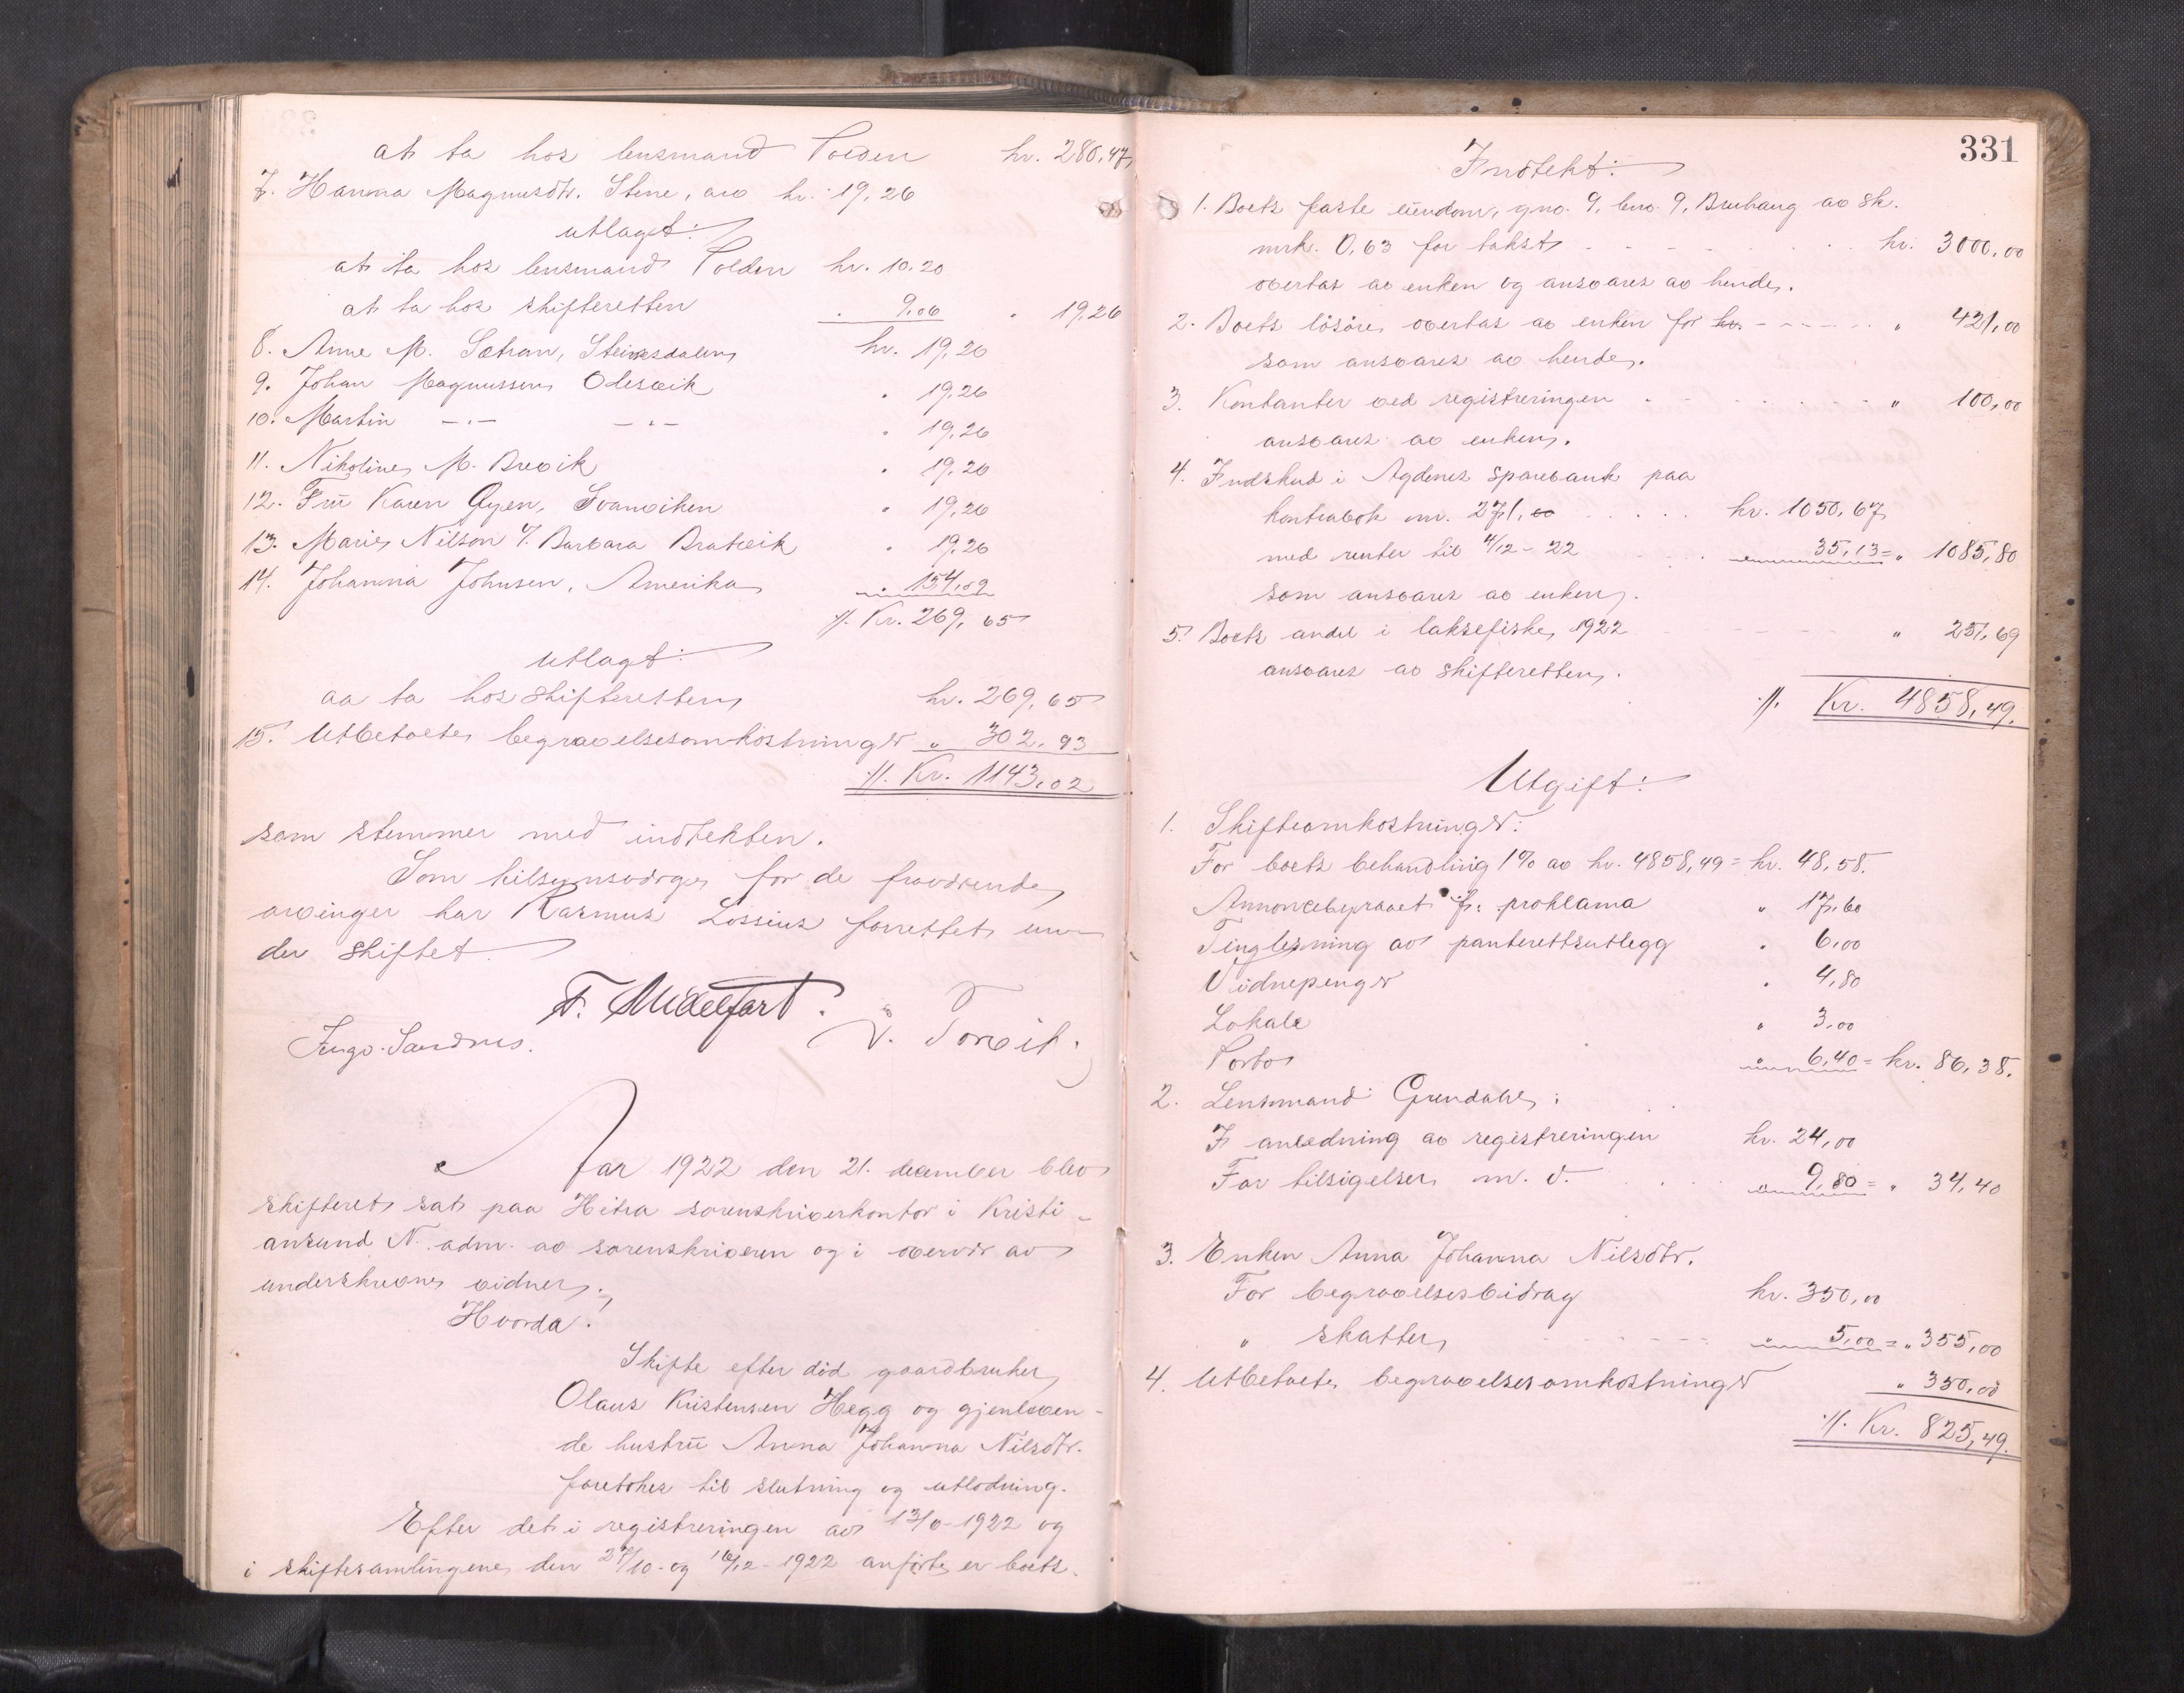 at ta hos lensmand Polden kr. 280,47
7. Hanna Magnusdtr. Stene, arv kr. 19,26
utlagt:
at ta hos lensmand Polden kr. 10,20
at ta hos skifteretten " 9,06 " 19,26
8. Anne M. Sætran, Steinsdalen kr. 19,26
9. Johan Magnussen Olesvik " 19,26
10. Martin -"- -"- " 19,26
11. Nikoline M. Brevik " 19,26
12. Fru Karen Øyen, Svanviken " 19,26
13. Marie Nilson v/ Barbara Bratvik " 19,26
14. Johanna Johnsen, Amerika " 154,09
://: Kr. 269,65
utlagt:
aa ta hos skifteretten kr. 269,65
15. Utbetalte begravelsesomkostninger " 302,93
://: Kr. 1143,02
som stemmer med indtekten.
Som tilsynsværge for de fraværende
arvinger har Rasmus Lossius forrettet un-
der skiftet.
F. Midelfart.
Inga Sandnes. J. Torvik.
Aar 1922 den 21. december blev
skifteret sat paa Hitra sorenskriverkontor i Kristi-
ansund N. adm. av sorenskriveren og i overvær av
underskrevne vidner.
Hvorda!
Skifte efter død gaardbruker
Olaus Kristensen Hegg og gjenleven-
de hustru Anna Johanna Nilsdtr.
foretokes til slutning og utlodning.
Efter det i registreringen av 13/6-1922 og
i skiftesamlingene den 27/10- og 16/12-1922 anførte er boets
331
Indtekt:
1. Boets faste eiendom, gno. 9, bno. 9, Bruhaug av sk.
mrk. 0,63 for takst kr. 3000,00
overtas av enken og ansvares av hende.
2. Boets løsøre overtas av enken for kr. " 421,00
som ansvares av hende.
3. Kontanter ved registreringen " 100,00
ansvares av enken.
4. Indskud i Agdenes sparebank paa
kontrabok nr. 271,00 kr. 1050,67
med renter til 4/12-22 " 35,13 = " 1085,80
som ansvares av enken.
5. Boets andel i laksefiske 1922 " 251,69
ansvares av skifteretten.
://: Kr. 4858,49.
Utgift:
1. Skifteomkostninger:
For boets behandling 1% av kr. 4858,49 = kr. 48,58.
Annoncebyraaet f: proklama " 17,60
Tinglesning av panterettsutlegg " 6,00
Vidnepenger " 4,80
Lokale " 3,00
Porto " 6,40 = kr. 86,38.
2. Lensmand Grendahl:
I anledning av registreringen kr. 24,00
For tilsigelser m. v. " 9,80 = " 34,40
3. Enken Anna Johanna Nilsdtr.
For begravelsesbidrag kr. 350,00
" skatter " 5,00 = " 355,00
4. Utbetalte begravelsesomkostninger " 350,00
://: Kr. 825,49.